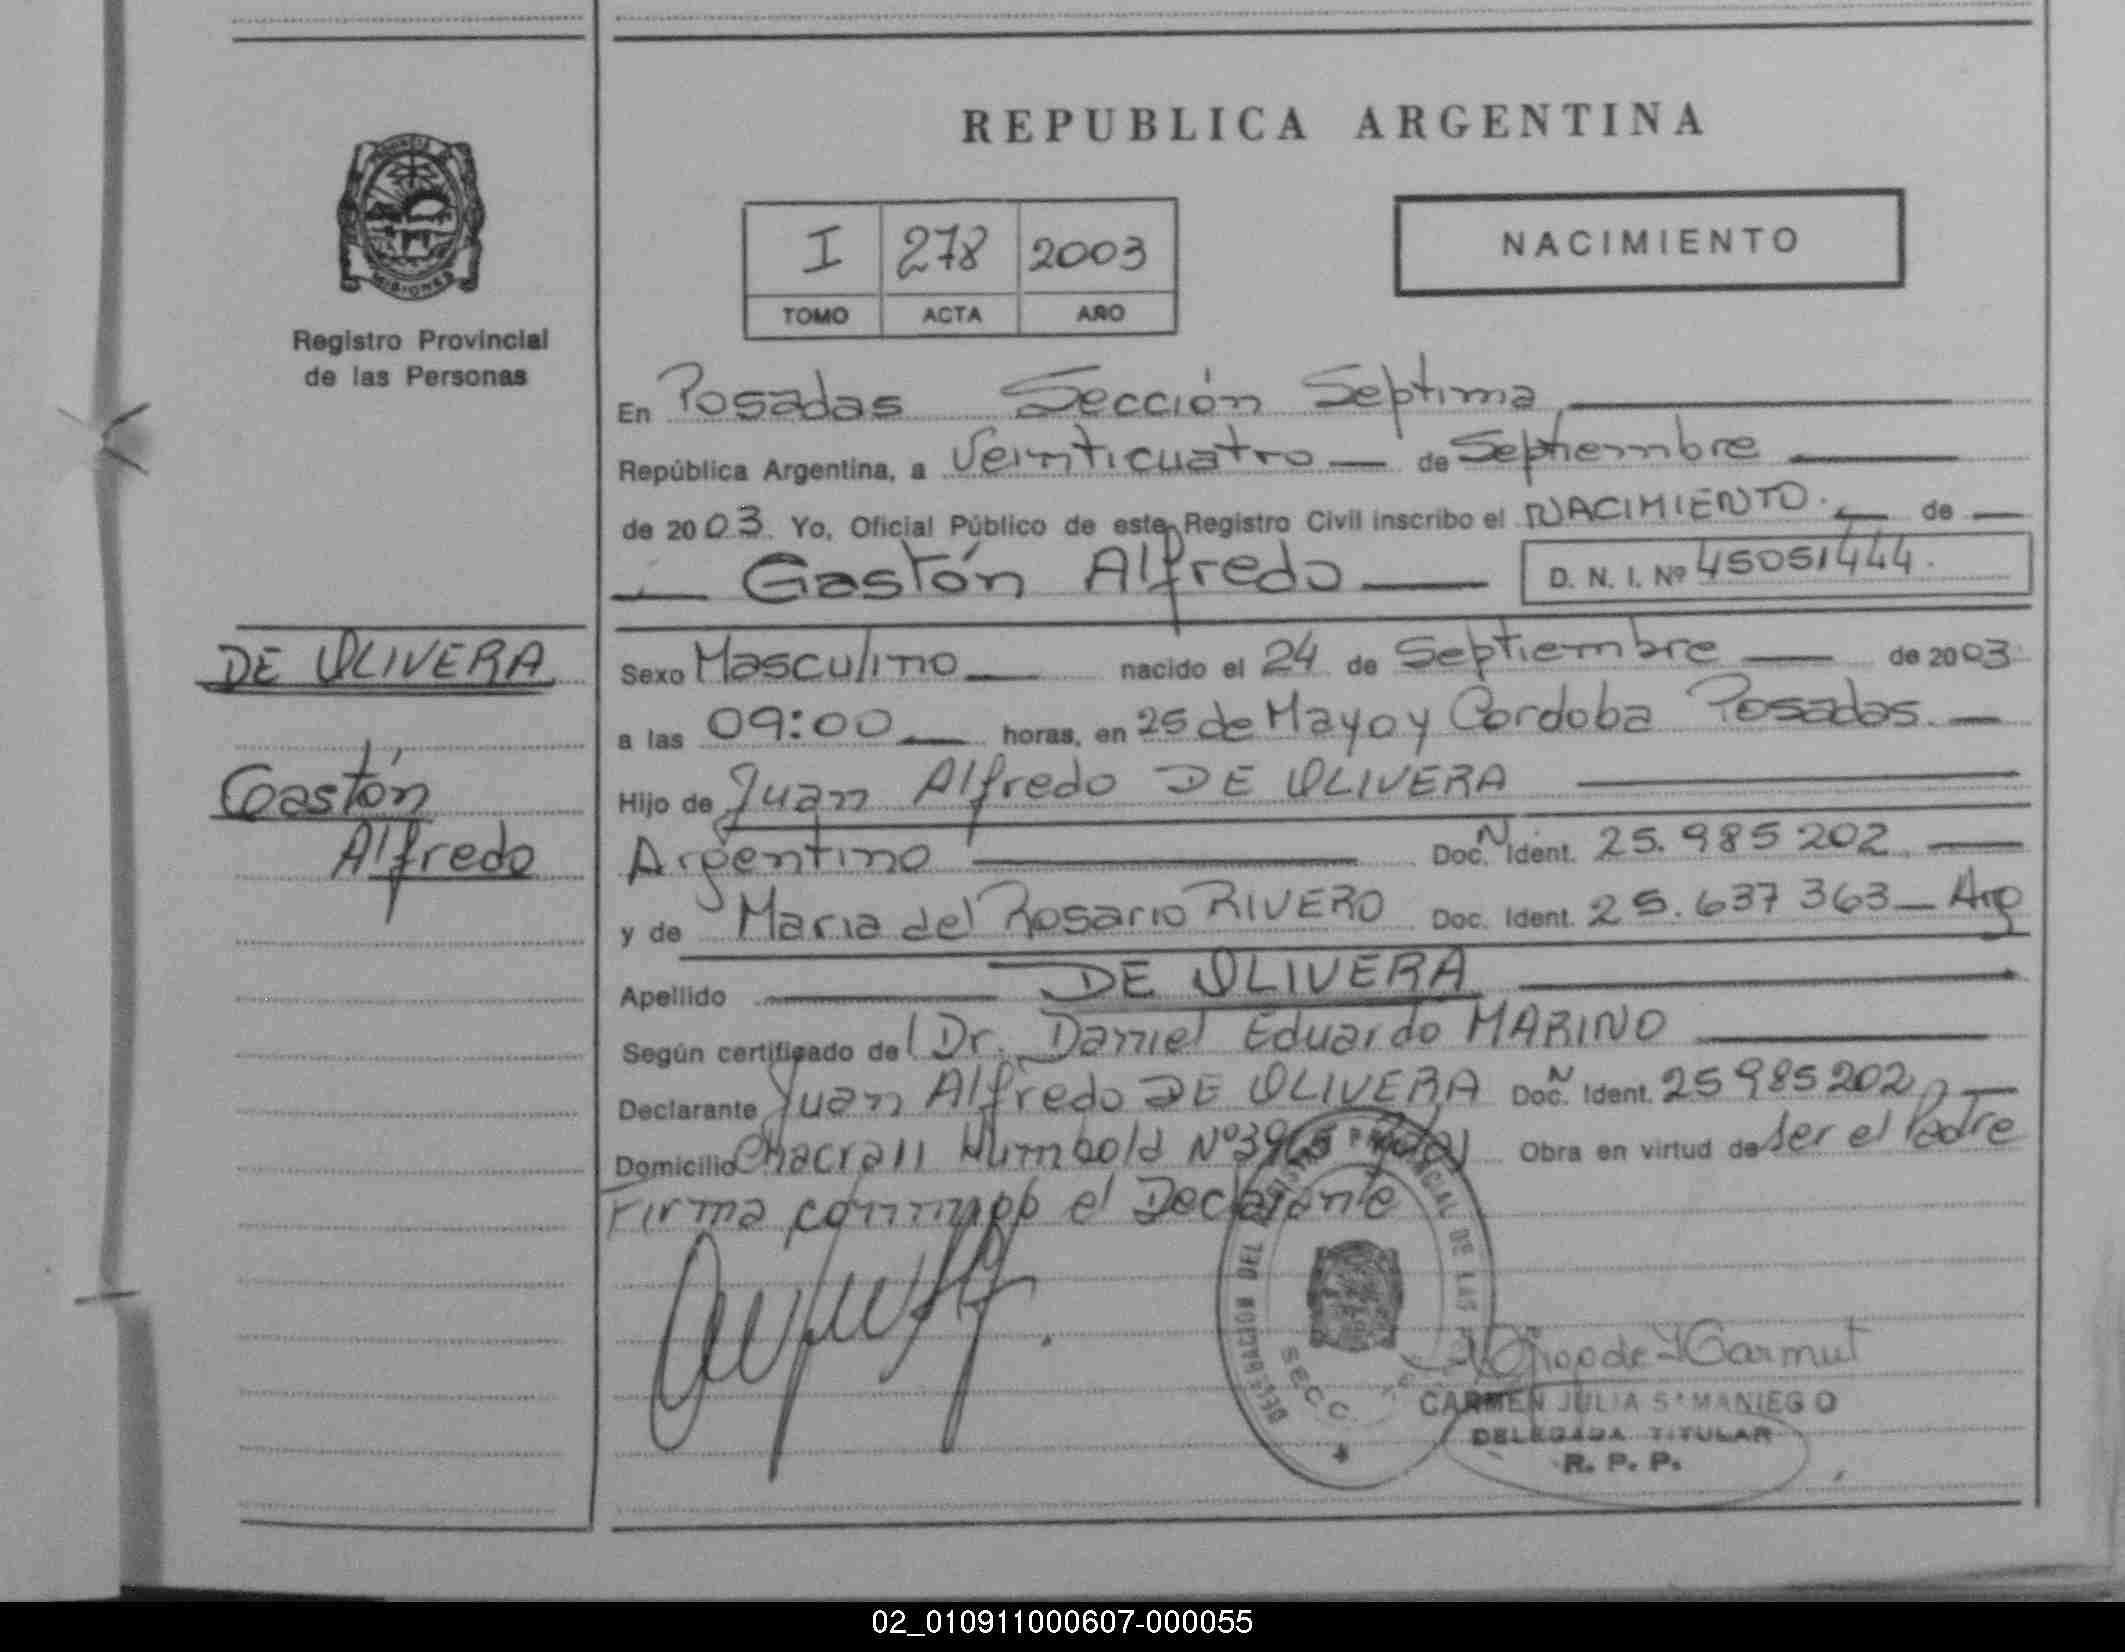 REPUBLICA ARGENTINA
PROVINCIA DE
MISIONES
Registro Provincial
de las Personas
I 278 2003
TOMO ACTA AÑO
NACIMIENTO
En Posadas Sección Septima
República Argentina, a Veinticuatro — de Septiembre
de 2003. Yo, Oficial Público de este Registro Civil inscribo el NACIMIENTO. — de —
— Gastón Alfredo — D. N. I. Nº 45051444.
DE OLIVERA
Gastón
Alfredo
Sexo Masculino — nacido el 24 de Septiembre — de 2003
a las 09:00 — horas, en 25 de Mayo y Cordoba Posadas. —
Hijo de Juan Alfredo DE OLIVERA
Argentino — Doc. N Ident. 25.985 202 —
y de Maria del Rosario RIVERO Doc. Ident. 25.637 363 — Arg
Apellido — DE OLIVERA —
Según certificado del Dr. Daniel Eduardo MARINO —
Declarante Juan Alfredo DE OLIVERA Doc. N Ident. 25985202 —
Domicilio Chacra 11 Nº Obra en virtud de ser el Padre
Firma el Declarante
DELEGACION DEL REGISTRO PROVINCIAL DE LAS
SECC.
CARMEN JULIA SAMANIEGO
DELEGADA TITULAR
R. P. P.
02_010911000607-000055